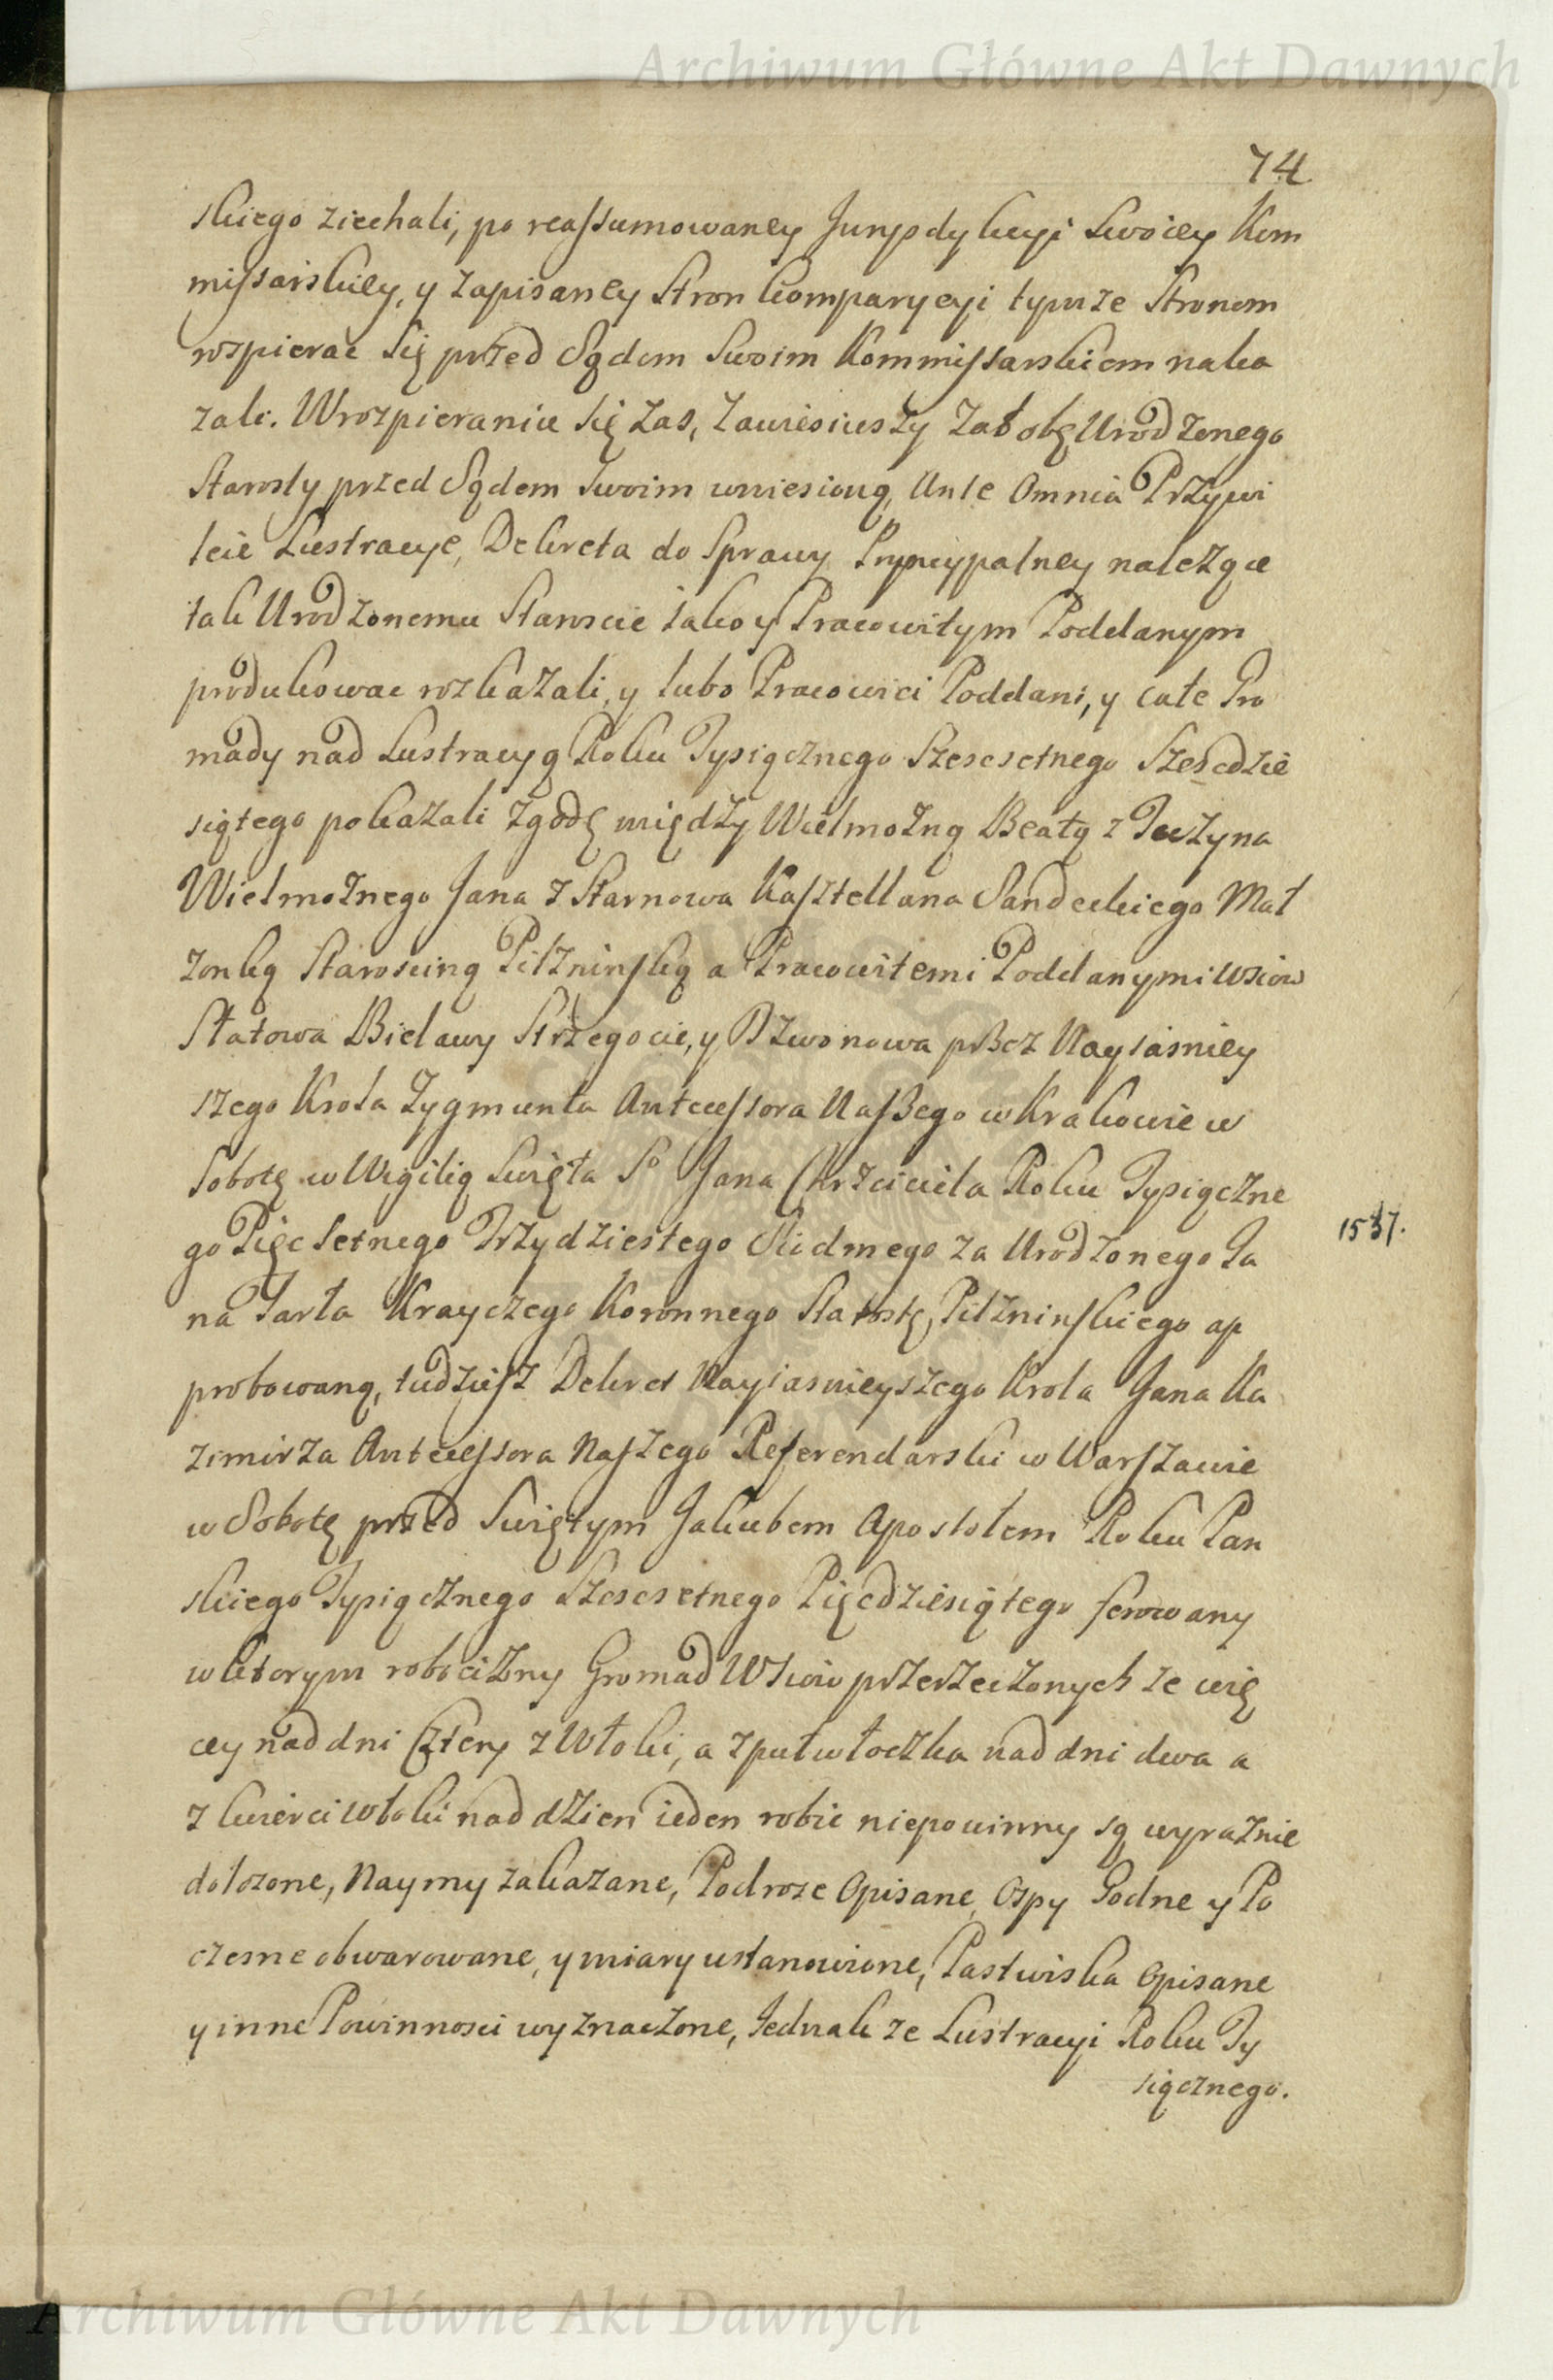 Archiwum Główne Akt Dawnych
74
skiego ziechali, po reassumowaney Jurysdykcyi Swoiey Kom
missarskiey, y zapisaney Stron Komparycyi tymże Stronom
rospierac Się przed Sądem Swoim Kommissarskiem naka
zali. W rozpieraniu Się zas, zawiesiwszy Załobę Urodzonego
Starosty przed Sądem Swoim wniesioną, Ante Omnia Przywi
leie Lustracye, Dekreta do Sprawy Pryncypalney należące
tak Urodzonemu Staroscie iako y Pracowitym Poddanym
produkowac rozkazali, y lubo Pracowici Poddani, y całe Gro
mady nad Lustracyą Roku Tysiącznego Szescsetnego Szescdzie
siątego pokazali zgodę między Wielmożną Beatą z Tęczyna
Wielmożnego Jana z Starnowa Kasztellana Sandeckiego Mał
żonką Starosciną Pilznińską a Pracowitemi Poddanymi Wsiow
Słatowa Bielawy Strzegocie, y Dzwonowa przez Nayiasniey
szego Krola Zygmunta Antecessora Naszego w Krakowie w
Sobotę w Wigilią Swięta So Jana Chrzciciela Roku Tysiączne
go Pięcsetnego Trzydziestego Siodmego za Urodzonego Ja
1537.
na Tarła Krayczego Koronnego Starostę Pilznińskiego ap
probowaną, tudziesz Dekret Nayiasnieyszego Krola Jana Ka
zimirza Antecessora Naszego Referendarski w Warszawie
w Sobotę przed Swiętym Jakubem Apostołem Roku Pan
skiego Tysiącznego Szescsetnego Pięcdziesiątego ferowany
w ktorym robocizny Gromad Wsiow przerzeczonych ze wię
cey nad dni Cztery z Włoki, a z pułwłoczka nad dni dwa a
z kwierci Włoki nad dzien ieden robic niepowinny są wyraznie
dołozone, Naymy zakazane, Podroże Opisane, Ospy Godne y Po
czesne obwarowane, y miary ustanowione, Pastwiska Opisane
y inne Powinnosci wyznaczone, Jednak ze Lustracyi Roku Ty
siącznego.
Archiwum Główne Akt Dawnych